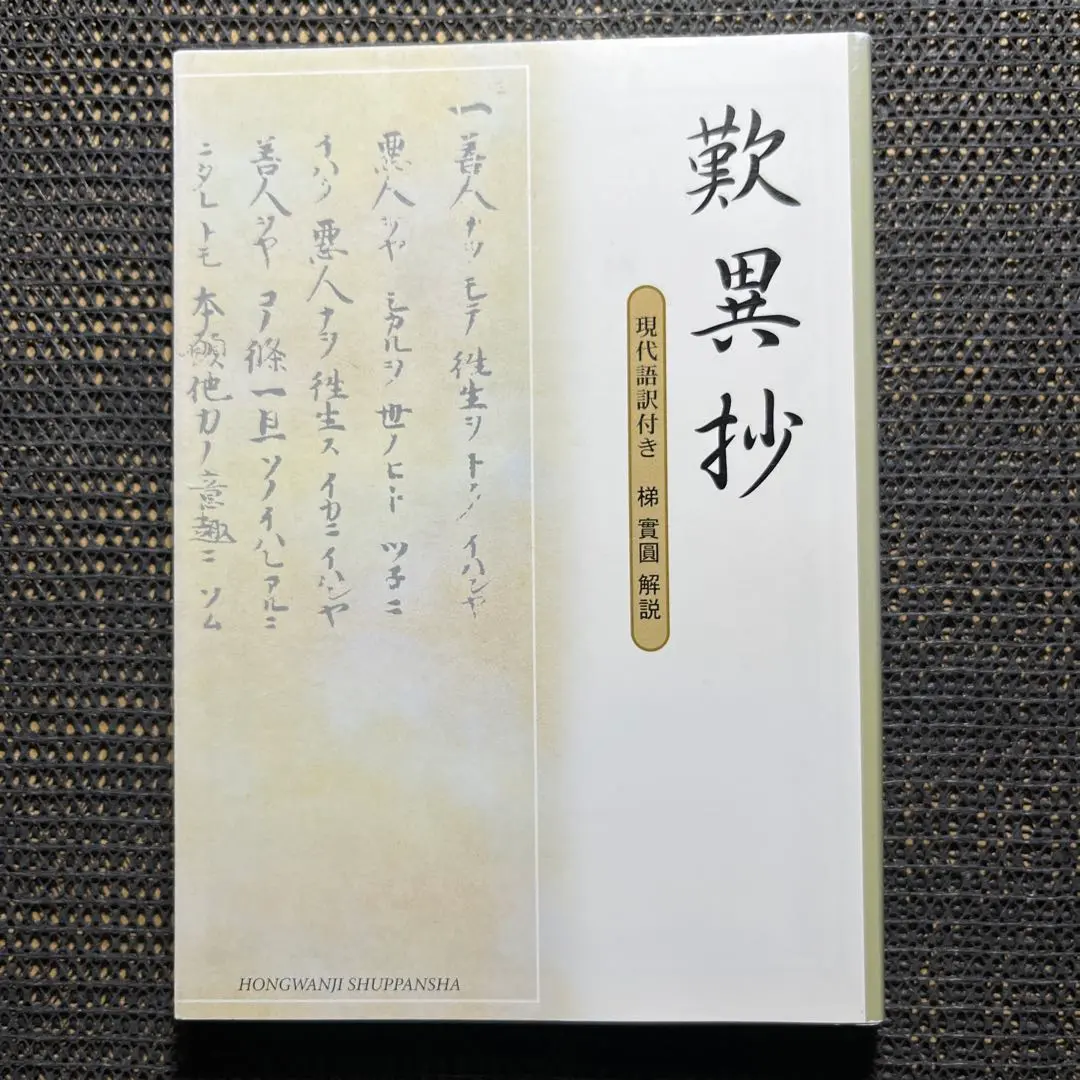 歎異抄
現代語訳付き 梯 實圓 解説
一 善人ナヲモテ往生ヲトク イハンヤ
悪人ヲヤ シカルヲ 世ノヒト ツネニ
イハク 悪人ナヲ往生ス イカニイハンヤ
善人ヲヤ コノ條一旦ソノイハレアルニ
ニタレトモ 本願他力ノ意趣ニソム
HONGWANJI SHUPPANSHA